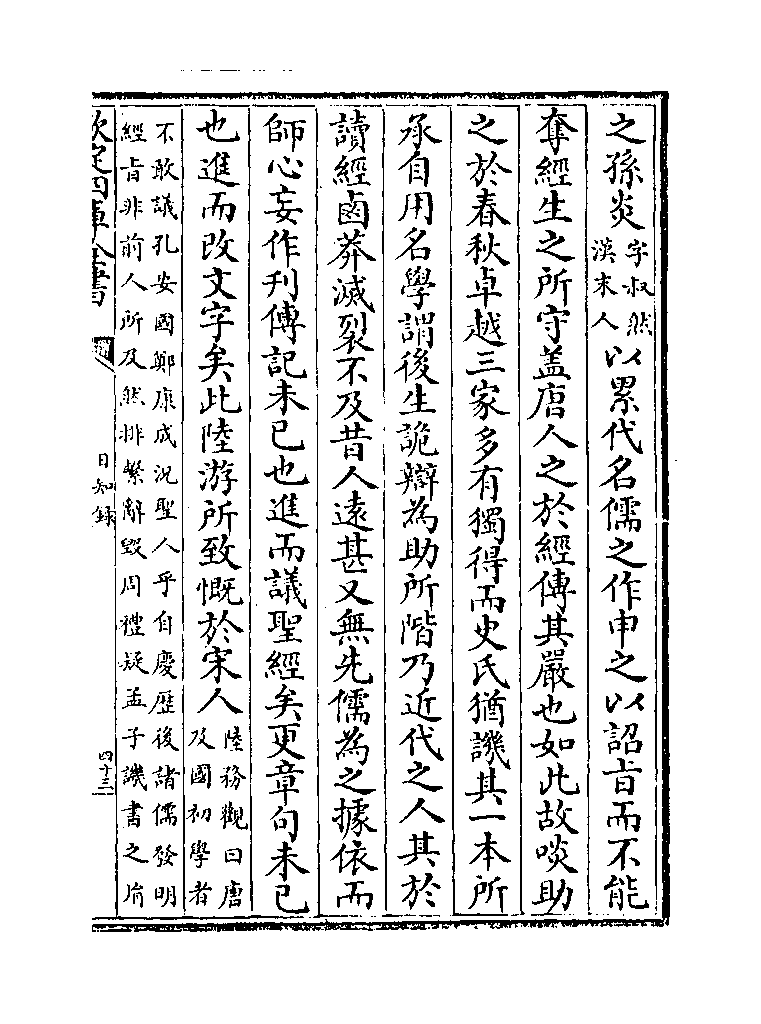 之孫炎字叔然漢末人以累代名儒之作申之以詔旨而不能
奪經生之所守盖唐人之於經傳其嚴也如此故啖助
之於春秋卓越三家多有獨得而史氏猶譏其一本所
承自用名學謂後生詭辯為助所階乃近代之人其於
讀經鹵莽滅裂不及昔人遠甚又無先儒為之據依而
師心妄作刋傳記未已也進而議聖經矣更章句未已
也進而改文字矣此陸游所致慨於宋人陸務觀曰唐及國初學者
不敢議孔安國鄭康成况聖人乎自慶歴後諸儒發明
經旨非前人所及然排繫辭毀周禮疑孟子譏書之胤
欽定四庫全書
日知錄
四十三